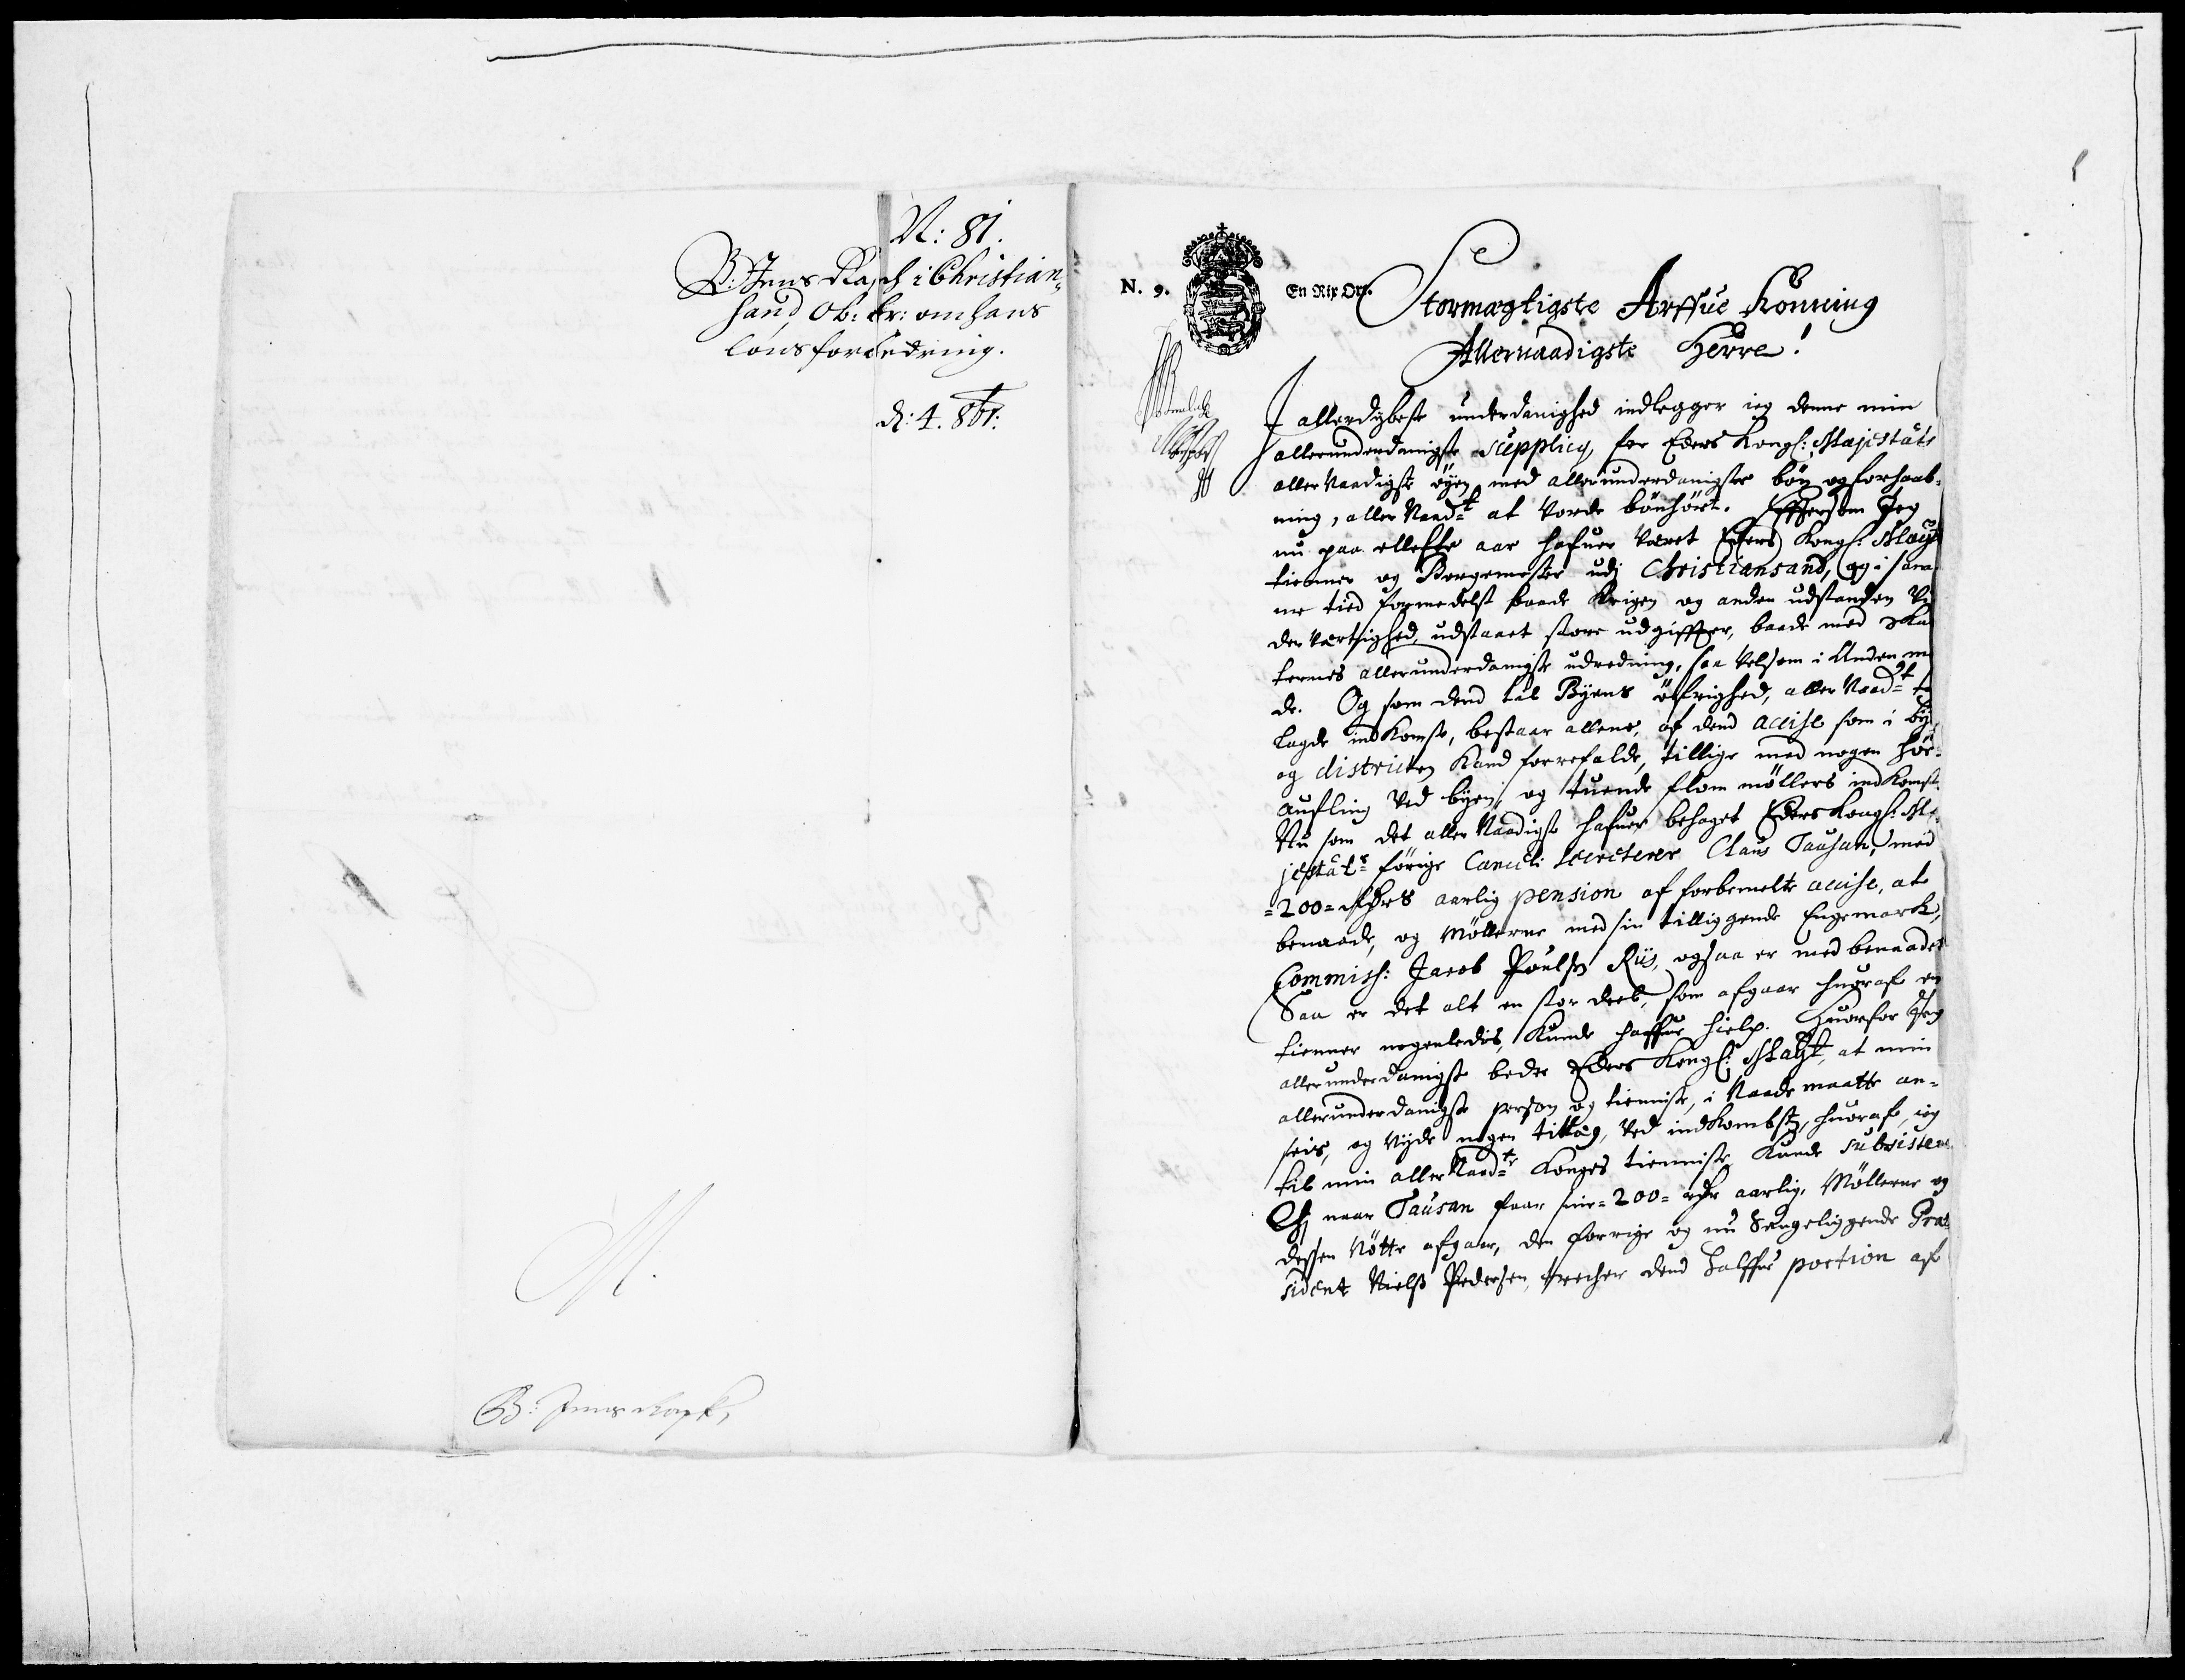 N: 81.
B: Jens Rasch i Christian-
sand, Ob: br: om hans
lons forbedring.
d: 4. 8br:
M.
B: Jens Rasch,
N. 9.
En Rix Ort.
Stormægtigste Arffue Konning
Allernaadigste Herre!
I allerdybeste underdanighed indlegger ieg denne min
allerunderdanigste Supplicq, for Eders Kongl: Majestäts
aller Naadigste öyen, med allerunderdanigste bön og forhaab-
ning, aller Naadt at vorde bönhört. Effterson Jeg
nu paa elleffte aar hafuer været Eders Kongl: Mayts
tienner og Borgemester udj Christiansand, og i sam-
me tied formedelst baade Krigen og anden udstanden Vi
derværtighed, udstaaet store udgiffter, baade med Ska
ternes allerunderdanigste udredning, saa velsom i Anden m
de. Og som dend til Byens öfrighed, aller Naadt til
lagde indkomst, bestaar allene, af dend accise som i by
og districten kand forrefalde, tillige med nogen hör-
aufling ved byen, og tuende flom möllers indkomst.
Nu som det aller Naadigst hafuer behaget Eders Kongl: Ma
jestäts förige Cancelli Secreterer Claus Tausan, med
=200= Rdrs aarlig pension af forbemelte accise, at
benaade, og Möllerne med sin tilliggende Engemark,
Commiss: Jacob Poulsn Riis, ogsaa er med benaadet
Saa er det alt en stor deel, som afgaar huoraf en
tienner nogenledis, kunde haffue hielp. Huorfor Jeg
allerunderdanigst beder Eders Kongl: Mayt, at min
allerunderdanigste person og tienniste, i Naade maatte an-
seis, og nyde nogen tillæg, ved indkombsten, huoraf, ieg
til min aller Naadte Konges tienniste kunde subsistere
Thj naar Tausan faar sine =200= rdr aarlig, Möllerne og
dessen Nötte afgaar, den forrige og nu Sengeliggende Præ
sident Nielß Pedersen, trecher dend halffue portion af